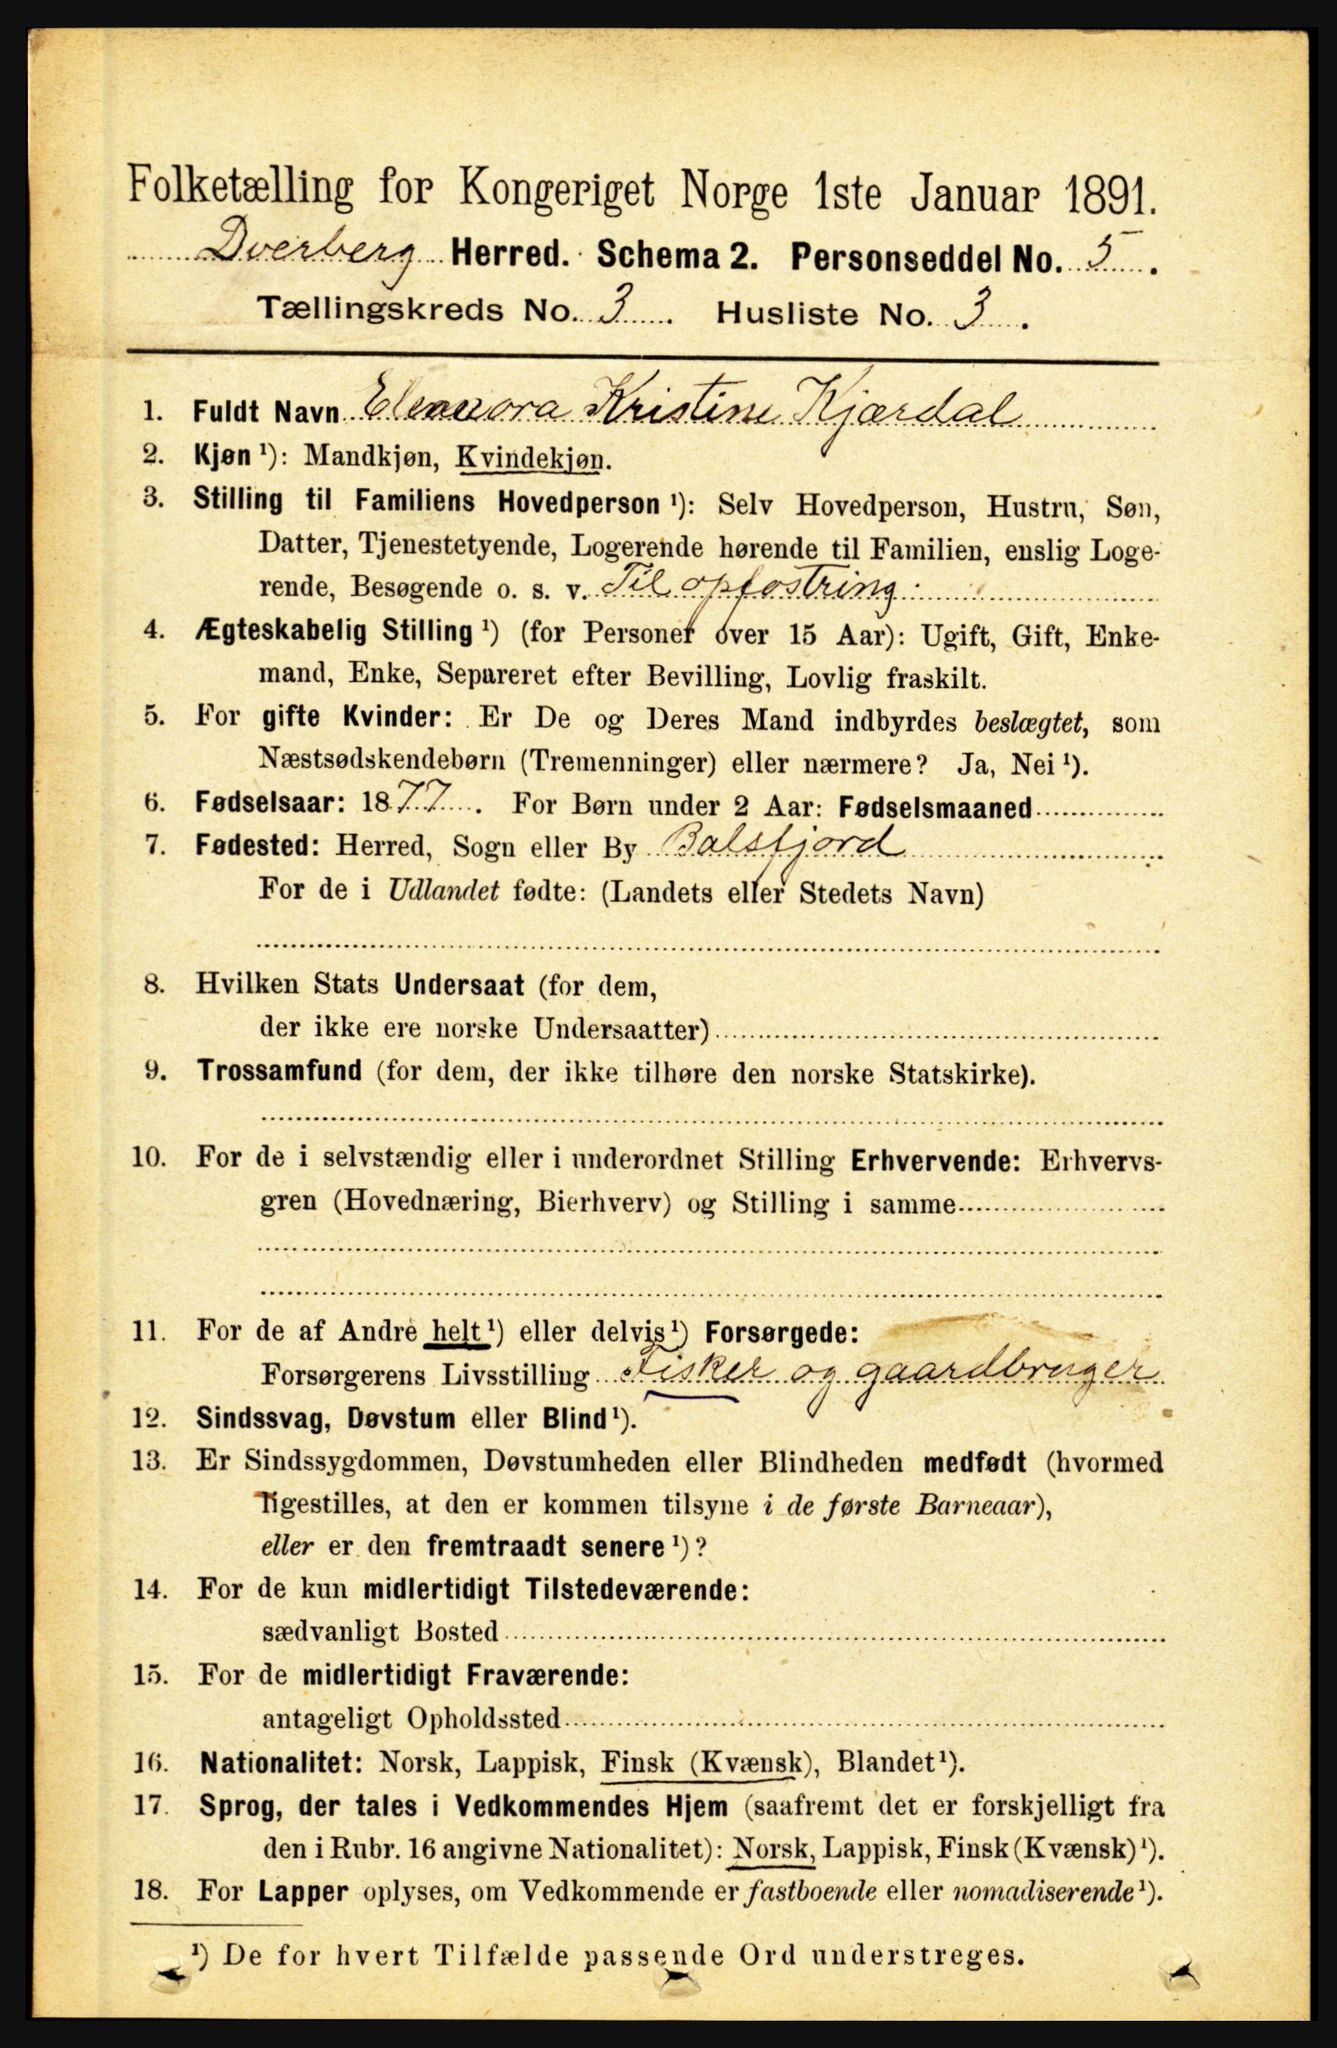 Folketælling for Kongeriget Norge 1ste Januar 1891.
Dverberg Herred. Schema 2. Personseddel No. 5.
Tællingskreds No. 3. Husliste No. 3.
1. Fuldt Navn Elenora Kristine Kjærdal
2. Kjøn ¹): Mandkjøn, Kvindekjøn.
3. Stilling til Familiens Hovedperson ¹): Selv Hovedperson, Hustru, Søn,
Datter, Tjenestetyende, Logerende hørende til Familien, enslig Loge-
rende, Besøgende o. s. v. Til opfostring.
4. Ægteskabelig Stilling ¹) (for Personer over 15 Aar): Ugift, Gift, Enke-
mand, Enke, Separeret efter Bevilling, Lovlig fraskilt.
5. For gifte Kvinder: Er De og Deres Mand indbyrdes beslægtet, som
Næstsødskendebørn (Tremenninger) eller nærmere? Ja, Nei ¹).
6. Fødselsaar: 1877. For Børn under 2 Aar: Fødselsmaaned
7. Fødested: Herred, Sogn eller By Balsfjord
For de i Udlandet fødte: (Landets eller Stedets Navn)
8. Hvilken Stats Undersaat (for dem,
der ikke ere norske Undersaatter)
9. Trossamfund (for dem, der ikke tilhøre den norske Statskirke).
10. For de i selvstændig eller i underordnet Stilling Erhvervende: Erhvervs-
gren (Hovednæring, Bierhverv) og Stilling i samme
11. For de af Andre helt ¹) eller delvis ¹) Forsørgede:
Forsørgerens Livsstilling Fisker og gaardbruger
12. Sindssvag, Døvstum eller Blind ¹).
13. Er Sindssygdommen, Døvstumheden eller Blindheden medfødt (hvormed
ligestilles, at den er kommen tilsyne i de første Barneaar),
eller er den fremtraadt senere ¹)?
14. For de kun midlertidigt Tilstedeværende:
sædvanligt Bosted
15. For de midlertidigt Fraværende:
antageligt Opholdssted
16. Nationalitet: Norsk, Lappisk, Finsk (Kvænsk), Blandet ¹).
17. Sprog, der tales i Vedkommendes Hjem (saafremt det er forskjelligt fra
den i Rubr. 16 angivne Nationalitet): Norsk, Lappisk, Finsk (Kvænsk) ¹).
18. For Lapper oplyses, om Vedkommende er fastboende eller nomadiserende ¹).
¹) De for hvert Tilfælde passende Ord understreges.